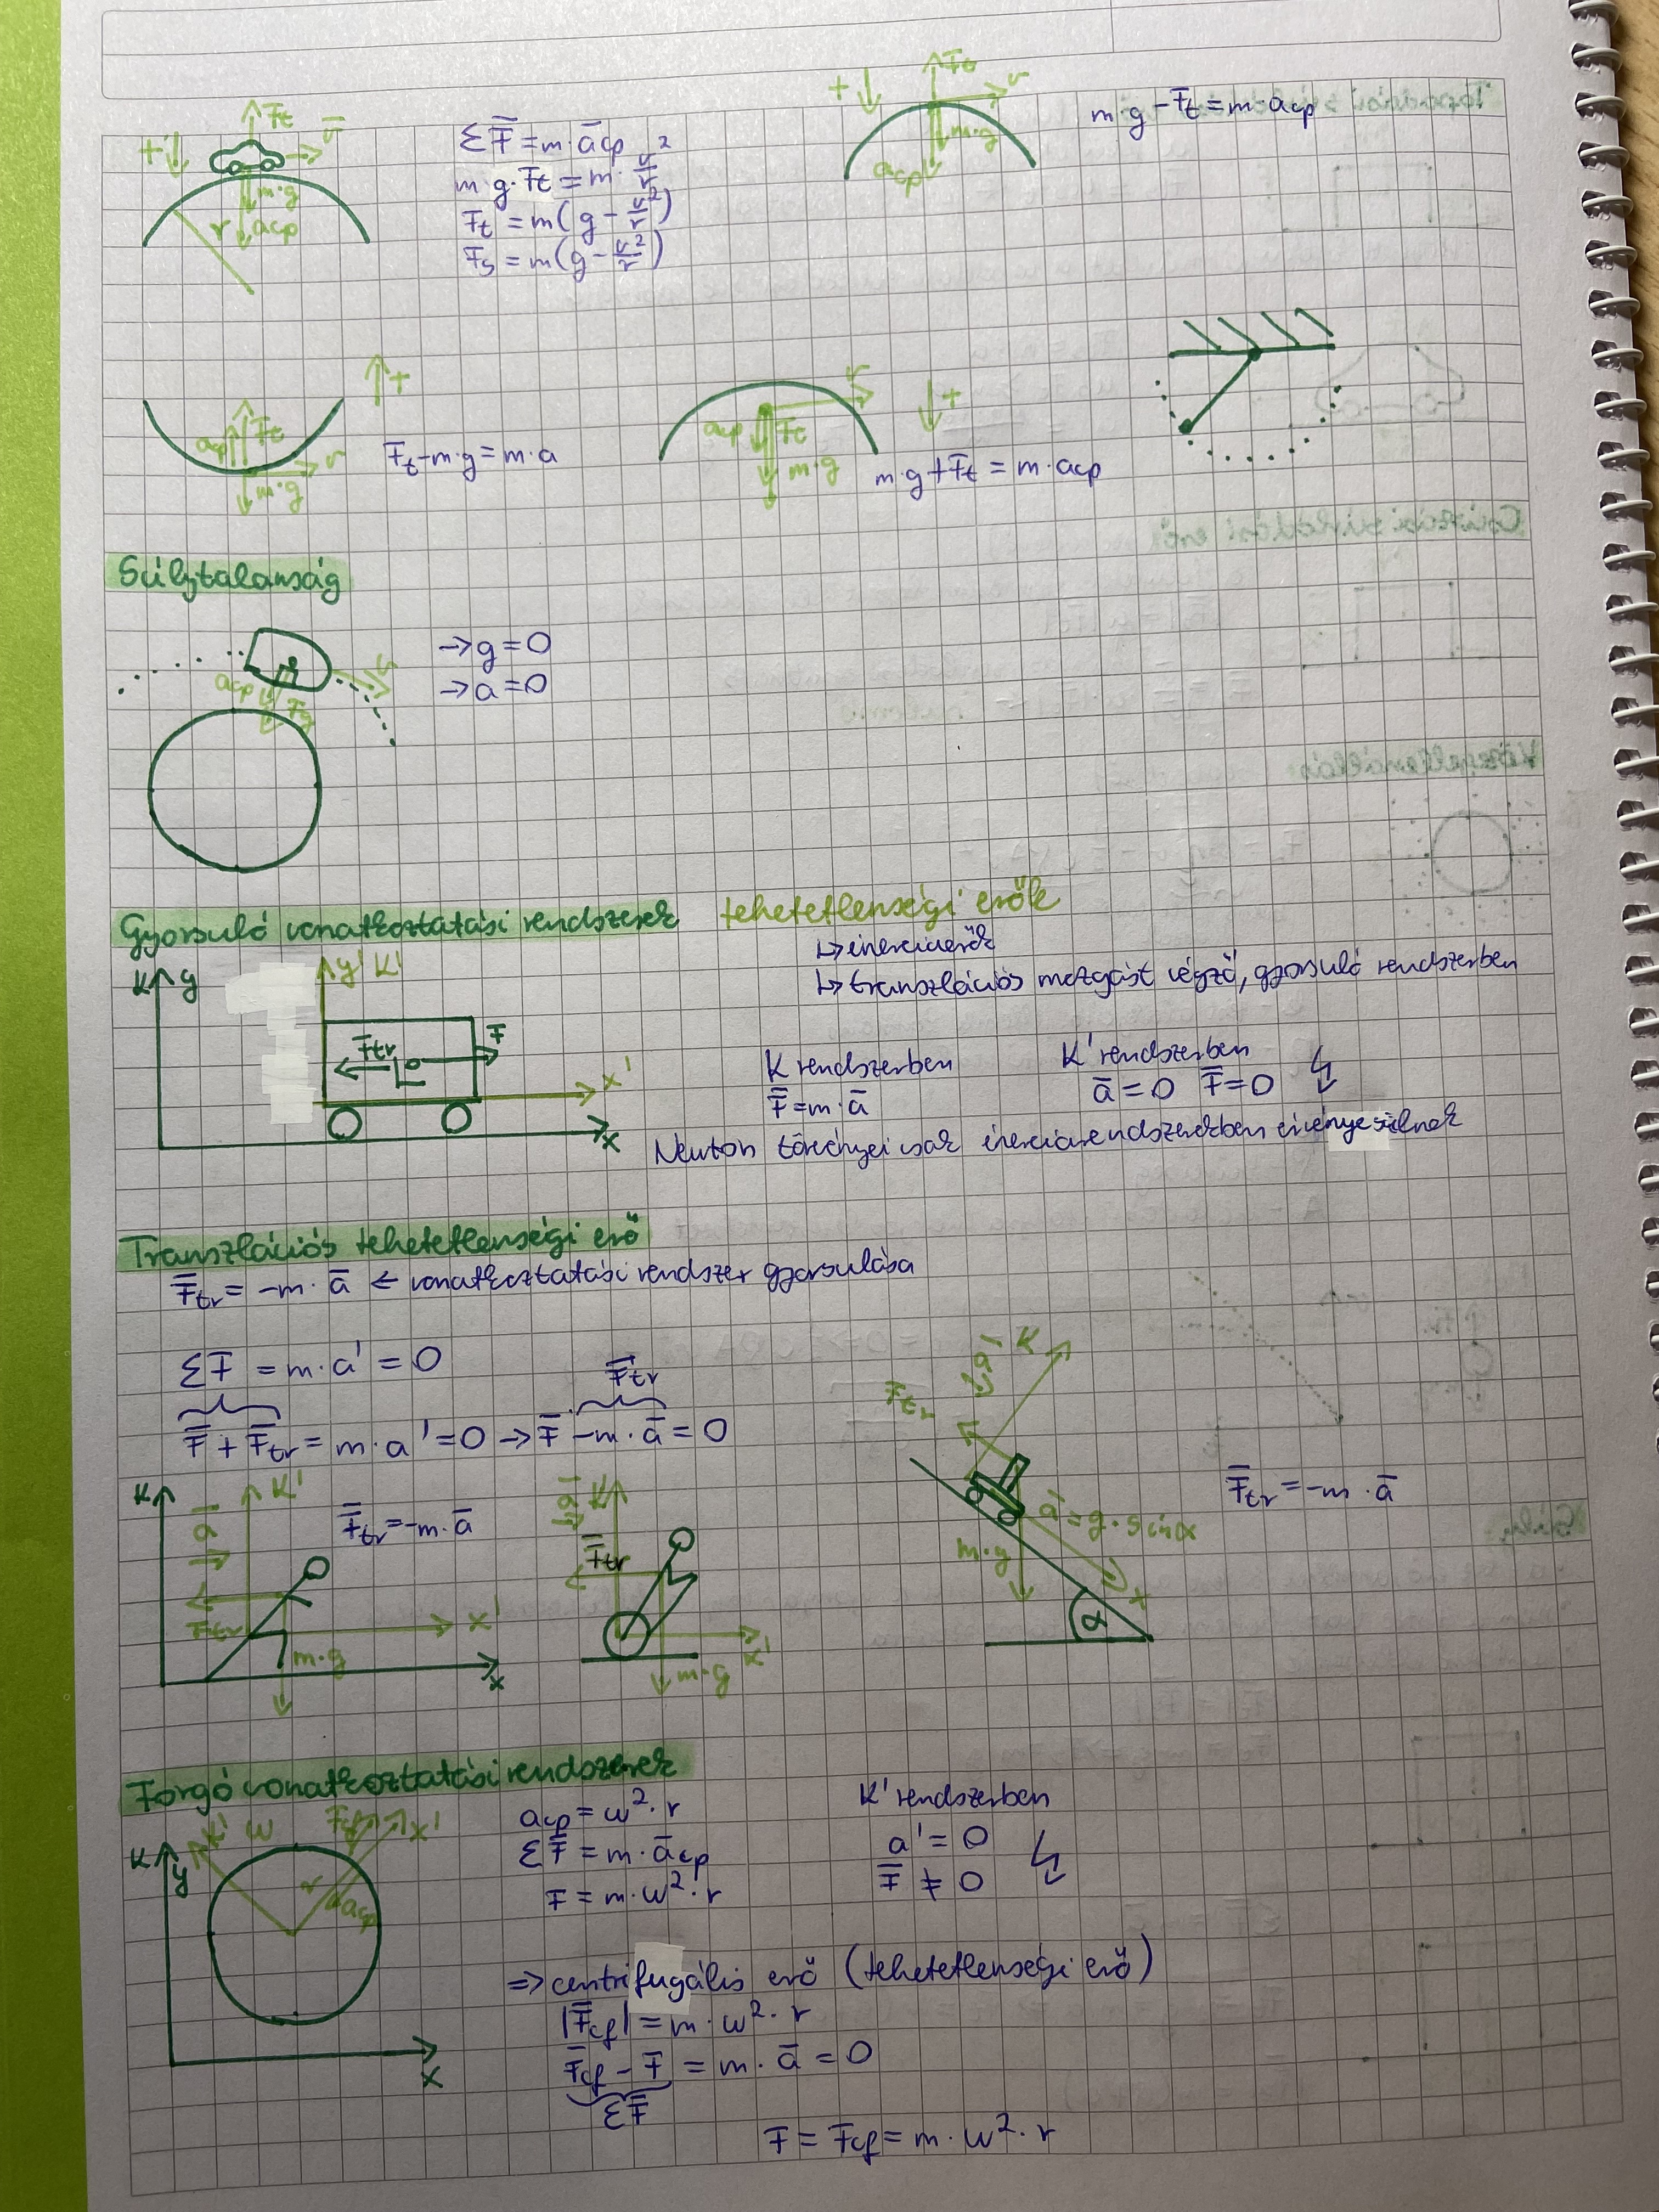 + F̄t v̄
m·g
r acp
ΣF̄ = m·ācp
m·g·F̄t = m·v²/r
Ft = m(g - v²/r)
Fs = m(g - v²/r)
+ F̄t v
m·g
acp
m·g - F̄t = m·acp
+
acp Ft v
m·g
F̄t - m·g = m·a
v
acp Ft +
m·g
m·g + F̄t = m·acp
Súlytalanság
v
acp Fg
→ g = 0
→ a = 0
Gyorsuló vonatkoztatási rendszerek tehetetlenségi erők
↳ inerciaerők
↳ transzlációs mozgást végző, gyorsuló rendszerben
K y y' K'
F̄tr F̄
x'
x
K rendszerben
F̄ = m·ā
K' rendszerben
ā = 0 F̄ = 0
Newton törvényei csak inerciarendszerekben érvényesülnek
Transzlációs tehetetlenségi erő
F̄tr = -m·ā ← vonatkoztatási rendszer gyorsulása
ΣF̄ = m·a' = 0
F̄tr
F̄ + F̄tr = m·a' = 0 → F̄ - m·ā = 0
K K'
ā
F̄tr = -m·ā
Ftr x'
m·g
x
ā K
F̄tr
m·g x'
ā K
Ftr
ā = g·sinα
m·g
x
α
F̄tr = -m·ā
Forgó vonatkoztatási rendszerek
K y K' ω Fcf x'
r acp
x
acp = ω²·r
ΣF̄ = m·ācp
F = m·ω²·r
K' rendszerben
a' = 0
F̄ ≠ 0
⇒ centrifugális erő (tehetetlenségi erő)
|F̄cf| = m·ω²·r
F̄cf - F̄ = m·ā = 0
ΣF̄
F = Fcf = m·ω²·r